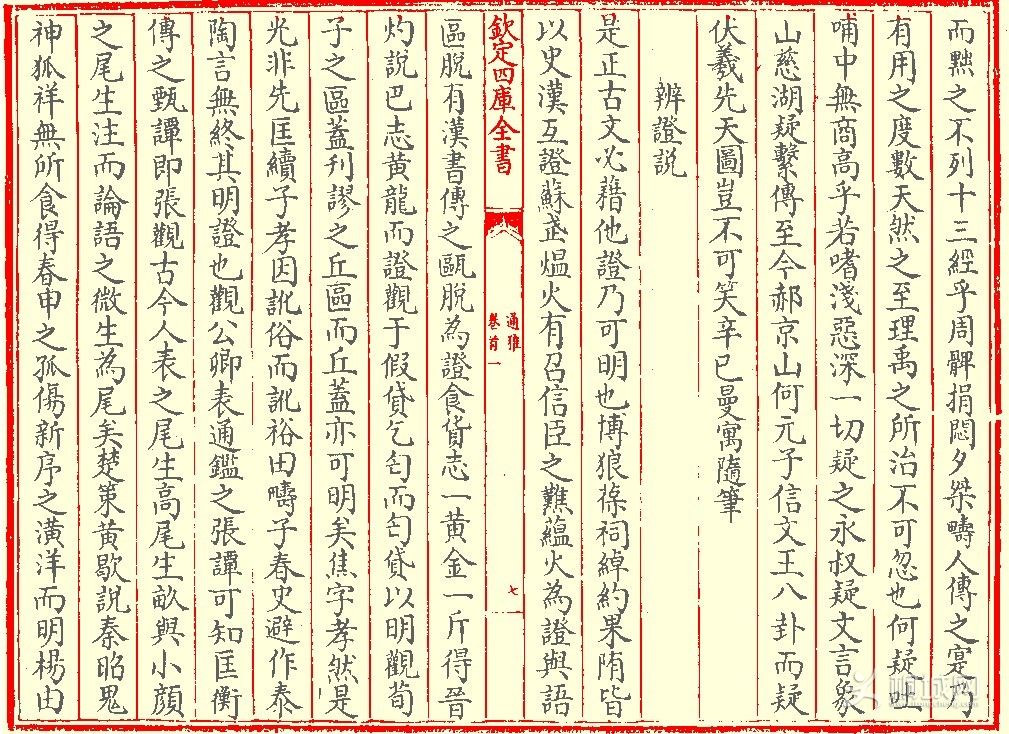 而黜之不列十三經乎周髀捐悶夕桀疇人傳之寔乃
有用之度數天然之至理禹之所治不可忽也何疑吐
哺中無商高乎若嗜淺惡深一切疑之永叔疑文言象
山慈湖疑繫傳至今郝京山何元子信文王八卦而疑
伏羲先天圖豈不可笑辛巳曼寓隨筆
辨證説
是正古文必藉他證乃可明也博狼蒤祠綽約果陏皆
以史漢互證蘇武熅火有召信臣之㸐蘊火為證與語
欽定四庫全書
通雅
卷首一
七
區脱有漢書傳之甌脱為證食貨志一黄金一斤得晉
灼説巴志黄龍而證觀于假貸乞匄而匄貸以明觀荀
子之區蓋刋謬之丘區而丘蓋亦可明矣焦字孝然是
光非先匡續子孝因訛俗而訛裕田疇子春史避作泰
陶言無終其明證也觀公卿表通鑑之張譚可知匡衡
傳之甄譚即張觀古今人表之尾生高尾生畝與小顔
之尾生注而論語之微生為尾矣楚策黄歇説秦昭鬼
神狐祥無所食得春申之孤傷新序之潢洋而明楊由